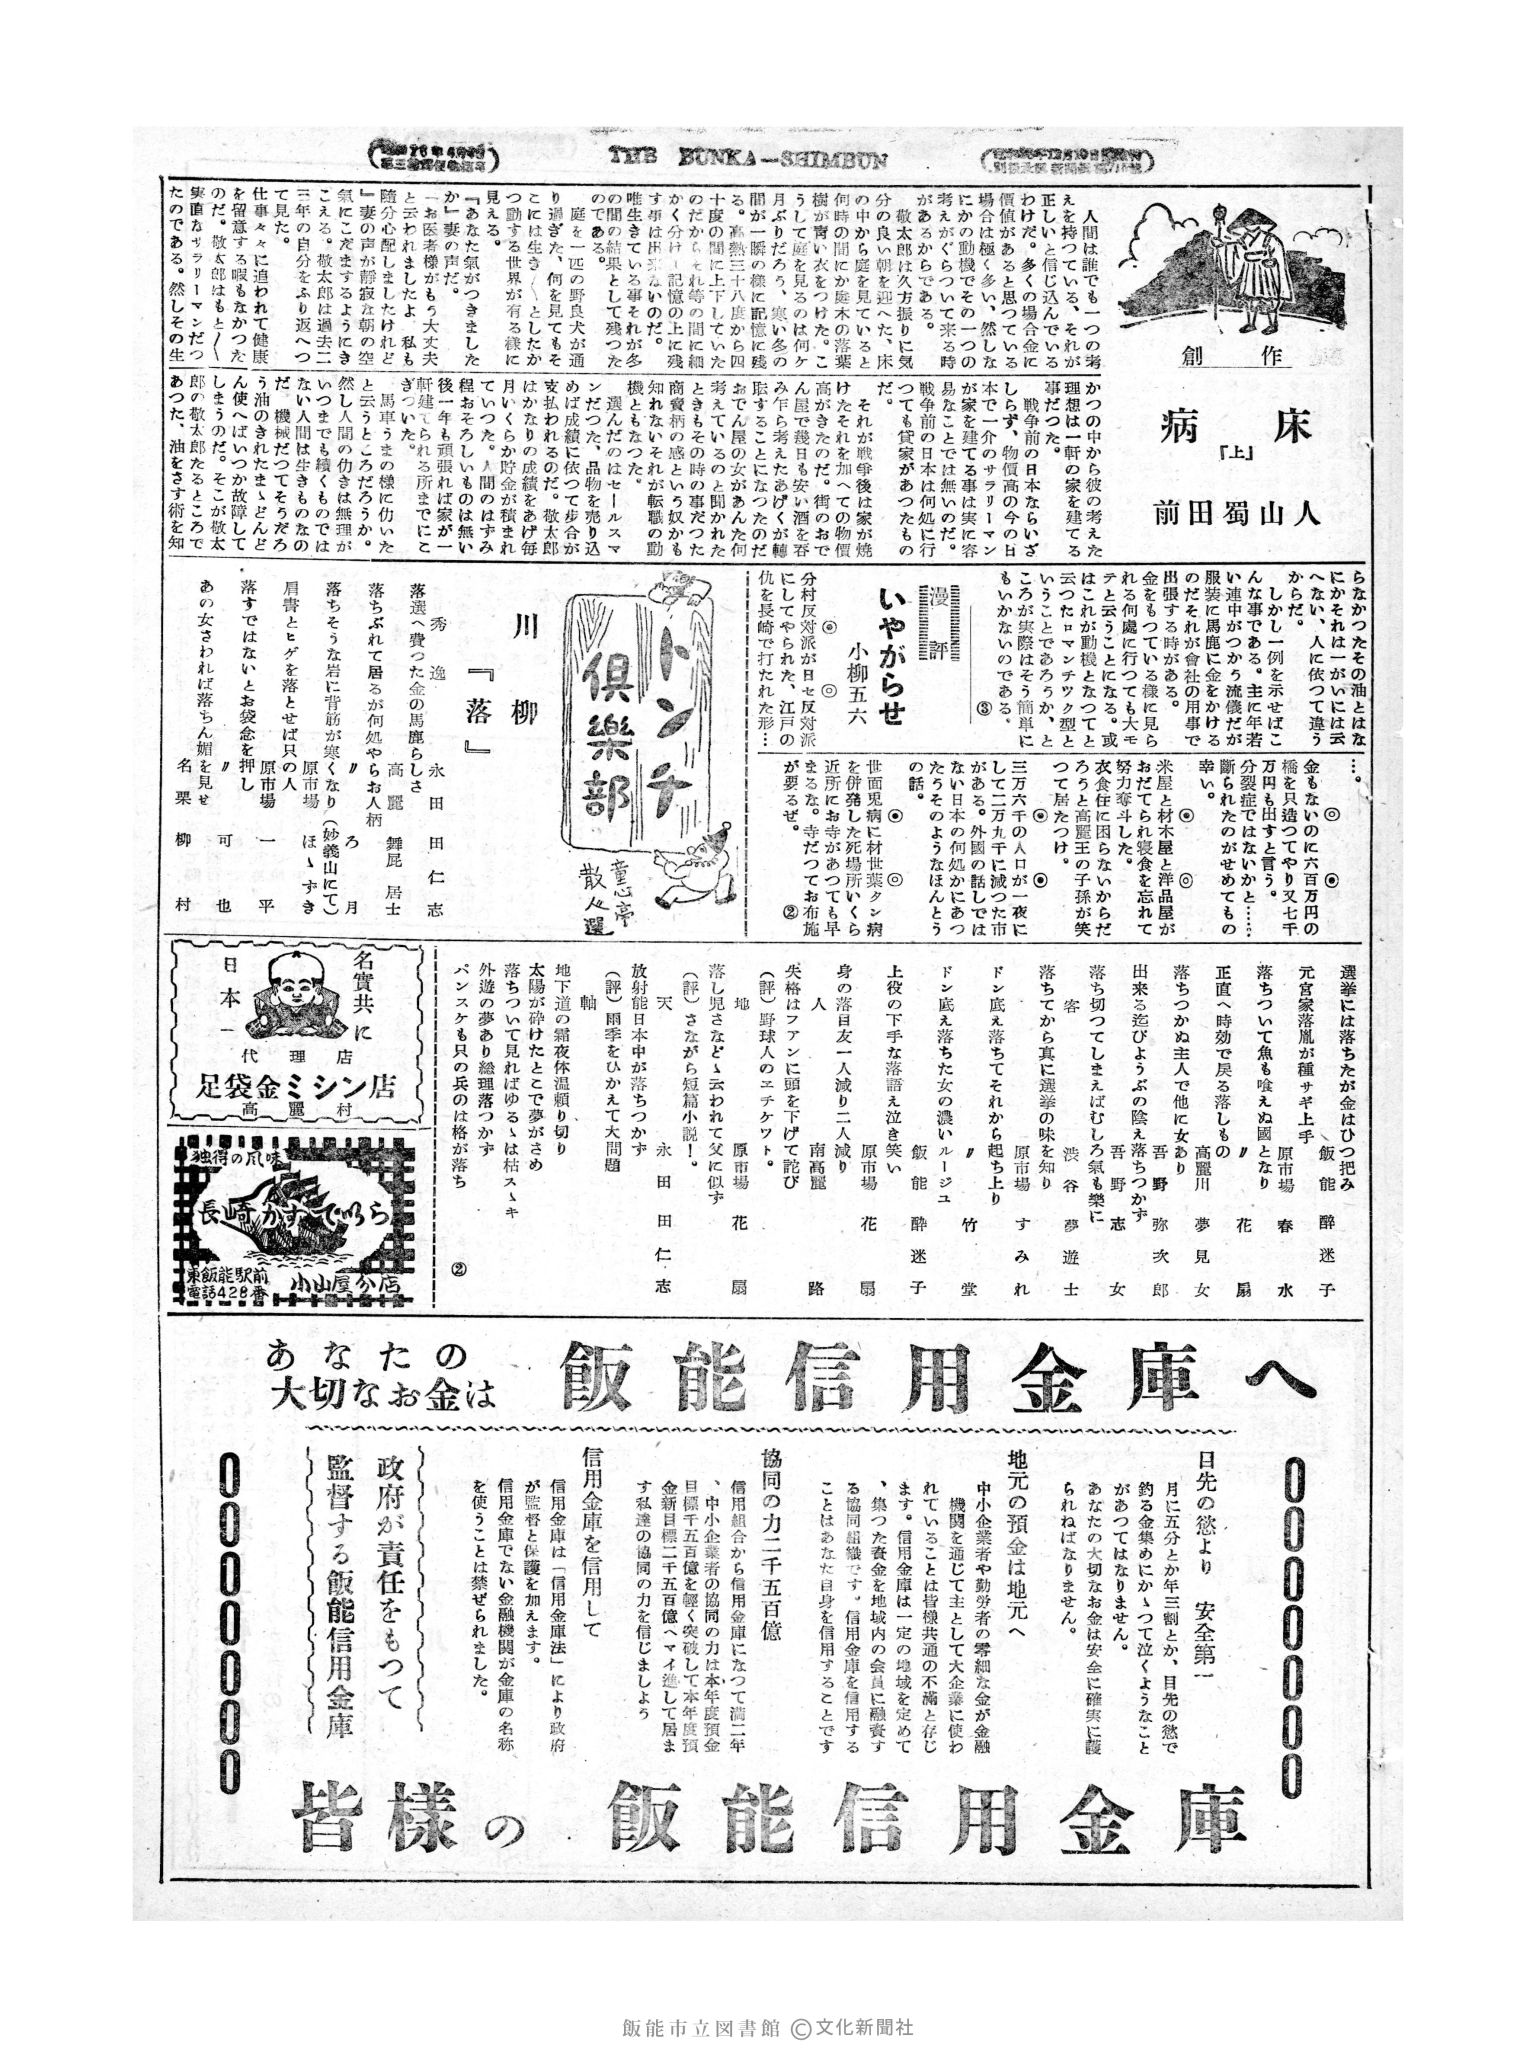 THE BUNKA-SHIMBUN
創作
病床
『上』
前田蜀山人
人間は誰でも一つの考
えを持つている、それが
正しいと信じ込んでいる
わけだ。多くの場合金に
価値があると思つている
場合は極く多い、然しな
にかの動機でその一つの
考えがぐらついて来る時
があるからである。
敬太郎は久方振りに気
分の良い朝を迎へた、床
の中から庭を見ていると
何時の間にか庭木の落葉
樹が青い衣をつけた。こ
うして庭を見るのは何ケ
月ぶりだろう、寒い冬の
間が一瞬の様に記憶に残
る。高熱三十八度から四
十度の間に上下していた
のだからそれ等の間に細
かく分けし記憶の上に残
す事は出来ないのだ。
唯生きている事それが多
の間の結果として残つた
のである。
庭を一匹の野良犬が通
り過ぎた、何を見てもそ
こには生き〳〵としたか
つ動する世界が有る様に
見える。
『あなた氣がつきました
か』妻の声だ。
「お医者様がもう大丈夫
と云われましたよ、私も
隨分心配しましたけれど
』妻の声が靜寂な朝の空
氣にこだまするようにき
こえる。敬太郎は過去二
三年の自分をふり返へつ
て見た。
仕事々々に追われて健康
を留意する暇もなかつた
のだ。敬太郎はもと〳〵
実直なサラリーマンだつ
たのである。然しその生
かつの中から彼の考えた
理想は一軒の家を建てる
事だつた。
戦争前の日本ならいざ
しらず、物價高の今の日
本で一介のサラリーマン
が家を建てる事は実に容
易なことでは無いのだ。
戦争前の日本は何処に行
つても貸家があつたもの
だ。
それが戦争後は家が焼
けたそれを加へての物價
高がきたのだ。街のおで
ん屋で幾日も安い酒を呑
み乍ら考えたあげくが轉
耺することになつたのだ
おでん屋の女があんた何
考えているのと聞かれた
ときもその時の事だつた
商賣柄の感という奴かも
知れないそれが転職の動
機ともなつた。
選んだのはセールスマ
ンだつた、品物を売り込
めば成績に依つて歩合が
支払われるのだ。敬太郎
はかなりの成績をあげ毎
月いくらか貯金が積まれ
ていつた。人間のはずみ
程おそろしいものは無い
後一年も頑張れば家が一
軒建てられる所までにこ
ぎついた。
馬車うまの様に仂いた
と云うところだろうか。
然し人間の仂きは無理が
いつまでも續くものでは
ない人間は生きものなの
だ、機械だつてそうだろ
う油のきれたまゝどんど
ん使へばいつか故障して
しまうのだ。そこが敬太
郎の敬太郎たるところで
あつた、油をさす術を知
らなかつたその油とはな
にかそれは一がいには云
へない、人に依つて違う
からだ。
しかし一例を示せばこ
んな事である。主に年若
い連中がつかう流儀だが
服装に馬鹿に金をかける
のだそれが會社の用事で
出張する時がある。
金をもつている様に見ら
れる何處に行つても大モ
テと云うことになる。或
はこれが動機となつてと
云つたロマンチツク型と
いうことであろうか、と
ころが実際はそう簡単に
もいかないのである。
③
漫評
いやがらせ
小柳五六
◎　◎
分村反対派が日セ反対派
にしてやられた、江戸の
仇を長崎で打たれた形…
…。
◎　◎
金もないのに六百万円の
橋を只造つてやり又七千
万円も出すと言う。
分裂症ではないかと……
断られたのがせめてもの
幸い。
◎　◎
米屋と材木屋と洋品屋が
おだてられ寝食を忘れて
努力奪斗した。
衣食住に困らないからだ
ろうと高麗王の子孫が笑
つて居たつけ。
◎　◎
三万六千の人口が一夜に
して二万九千に減つた市
がある。外國の話しでは
ない日本の何処かにあつ
たうそのようなほんとう
の話。
◎　◎
世面児病に材世葉タン病
を併発した死場所いくら
近所にお寺があつても早
まるな。寺だつてお布施
が要るぜ。
②
トンチ
倶樂部
童心亭
散人選
川柳
『落』
秀逸
落選へ費つた金の馬鹿らしさ
永田仁志
落ちぶれて居るが何処やらお人柄
高麗　舞屁居士
落ちそうな岩に背筋が寒くなり（妙義山にて）
〃　ろ月
肩書とヒゲを落とせば只の人
原市場　ほゝずき
落すではないとお袋念を押し
原市場　一平
〃　可也
あの女さわれば落ちん媚を見せ
名栗　柳村
選挙には落ちたが金はひつ把み
飯能　醉迷子
元宮家落胤が種サギ上手
原市場　春水
落ちついて魚も喰えぬ國となり
〃　花扇
正直へ時効で戻る落しもの
高麗川　夢見女
落ちつかぬ主人で他に女あり
吾野　弥次郎
出来る迄びようぶの陰え落ちつかず
吾野　志女
落ち切つてしまえばむしろ氣も樂に
渋谷　夢遊士
客
落ちてから真に選挙の味を知り
原市場　すみれ
ドン底え落ちてそれから起ち上り
〃　竹堂
ドン底え落ちた女の濃いルージユ
飯能　酔迷子
上役の下手な落語え泣き笑い
原市場　花扇
身の落目友一人減り二人減り
南高麗　路
人
失格はフアンに頭を下げて詫び
（評）野球人のエチケツト。
地
原市場　花扇
落し児さなどゝ云われて父に似ず
（評）さながら短篇小説！。
天
永田仁志
放射能日本中が落ちつかず
（評）雨季をひかえて大問題
軸
地下道の霜夜体温頼り切り
太陽が砕けたとこで夢がさめ
落ちついて見ればゆるゝは枯スゝキ
外遊の夢あり総理落つかず
パンスケも只の兵のは格が落ち
②
名實共に
日本一
代理店
足袋金ミシン店
高麗村
独得の風味
長崎かすていら
東飯能駅前
電話428番
小山屋分店
あなたの
大切なお金は
飯能信用金庫へ
目先の慾より　安全第一
月に五分とか年三割とか、目先の慾で
釣る金集めにかゝつて泣くようなこと
があつてはなりません。
あなたの大切なお金は安全に確実に護
られねばなりません。
地元の預金は地元へ
中小企業者や勤労者の零細な金が金融
機関を通じて主として大企業に使わ
れていることは皆様共通の不滿と存じ
ます。信用金庫は一定の地域を定めて
、集つた資金を地域内の会員に融資す
る協同組織です。信用金庫を信用する
ことはあなた自身を信用することです
協同の力二千五百億
信用組合から信用金庫になつて満二年
、中小企業者の協同の力は本年度預金
目標千五百億を輕く突破して本年度預
金新目標二千五百億へマイ進して居ま
す私達の協同の力を信じましよう
信用金庫を信用して
信用金庫は「信用金庫法」により政府
が監督と保護を加えます。
信用金庫でない金融機関が金庫の名称
を使うことは禁ぜられました。
政府が責任をもつて
監督する飯能信用金庫
皆様の　飯能信用金庫
飯能市立図書館 ©文化新聞社